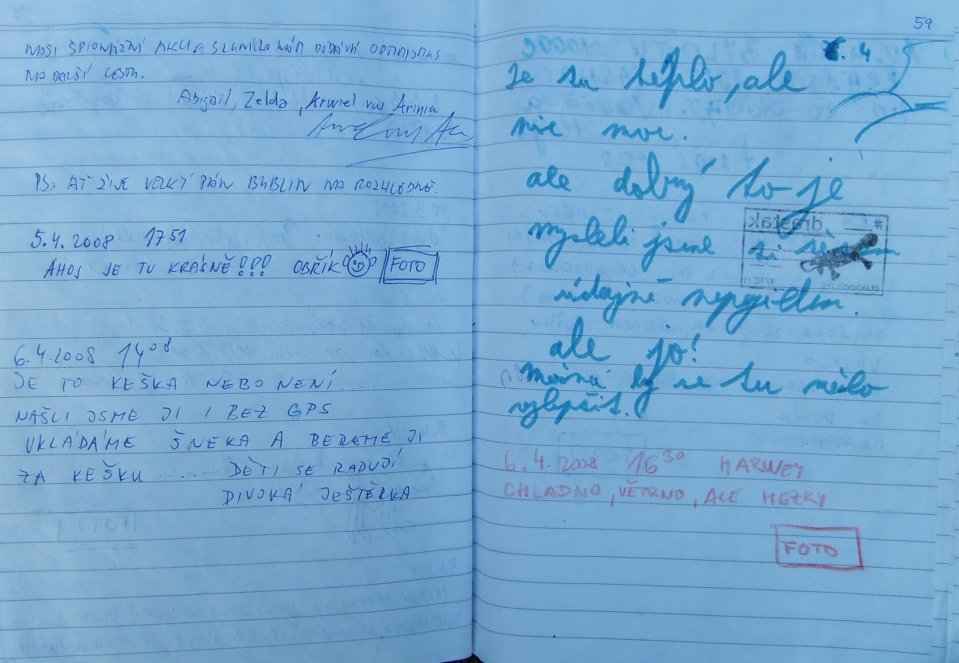 NAŠI ŠPIONÁŽNÍ AKCI A SLUNÍČKO NÁM DODÁVÁ OPTIMISMUS
NA DALŠÍ CESTU.
Abigail, Zelda, Arwiel vus Arinia
PS: AŤ ŽIJE VELKÝ PÁN BUBLIN NA ROZHLEDNĚ.
5.4.2008 17 51
AHOJ JE TU KRÁSNĚ!!! OBŘÍK FOTO
6.4.2008 14 08
JE TO KEŠKA NEBO NENÍ....
NAŠLI JSME JI I BEZ GPS
UKLÁDÁME ŠNEKA A BEREME JI
ZA KEŠKU ..... DĚTI SE RADUJÍ
DIVOKÁ JEŠTĚRKA
59
6.4
Je tu teplo, ale
nic moc.
ale dobrý to je
mysleli jsme si
ale jo!
Možná by se tu mělo
vylepšit.
drsťak
6.4.2008 16 30 HARWEY
CHLADNO, VĚTRNO, ALE HEZKY
FOTO